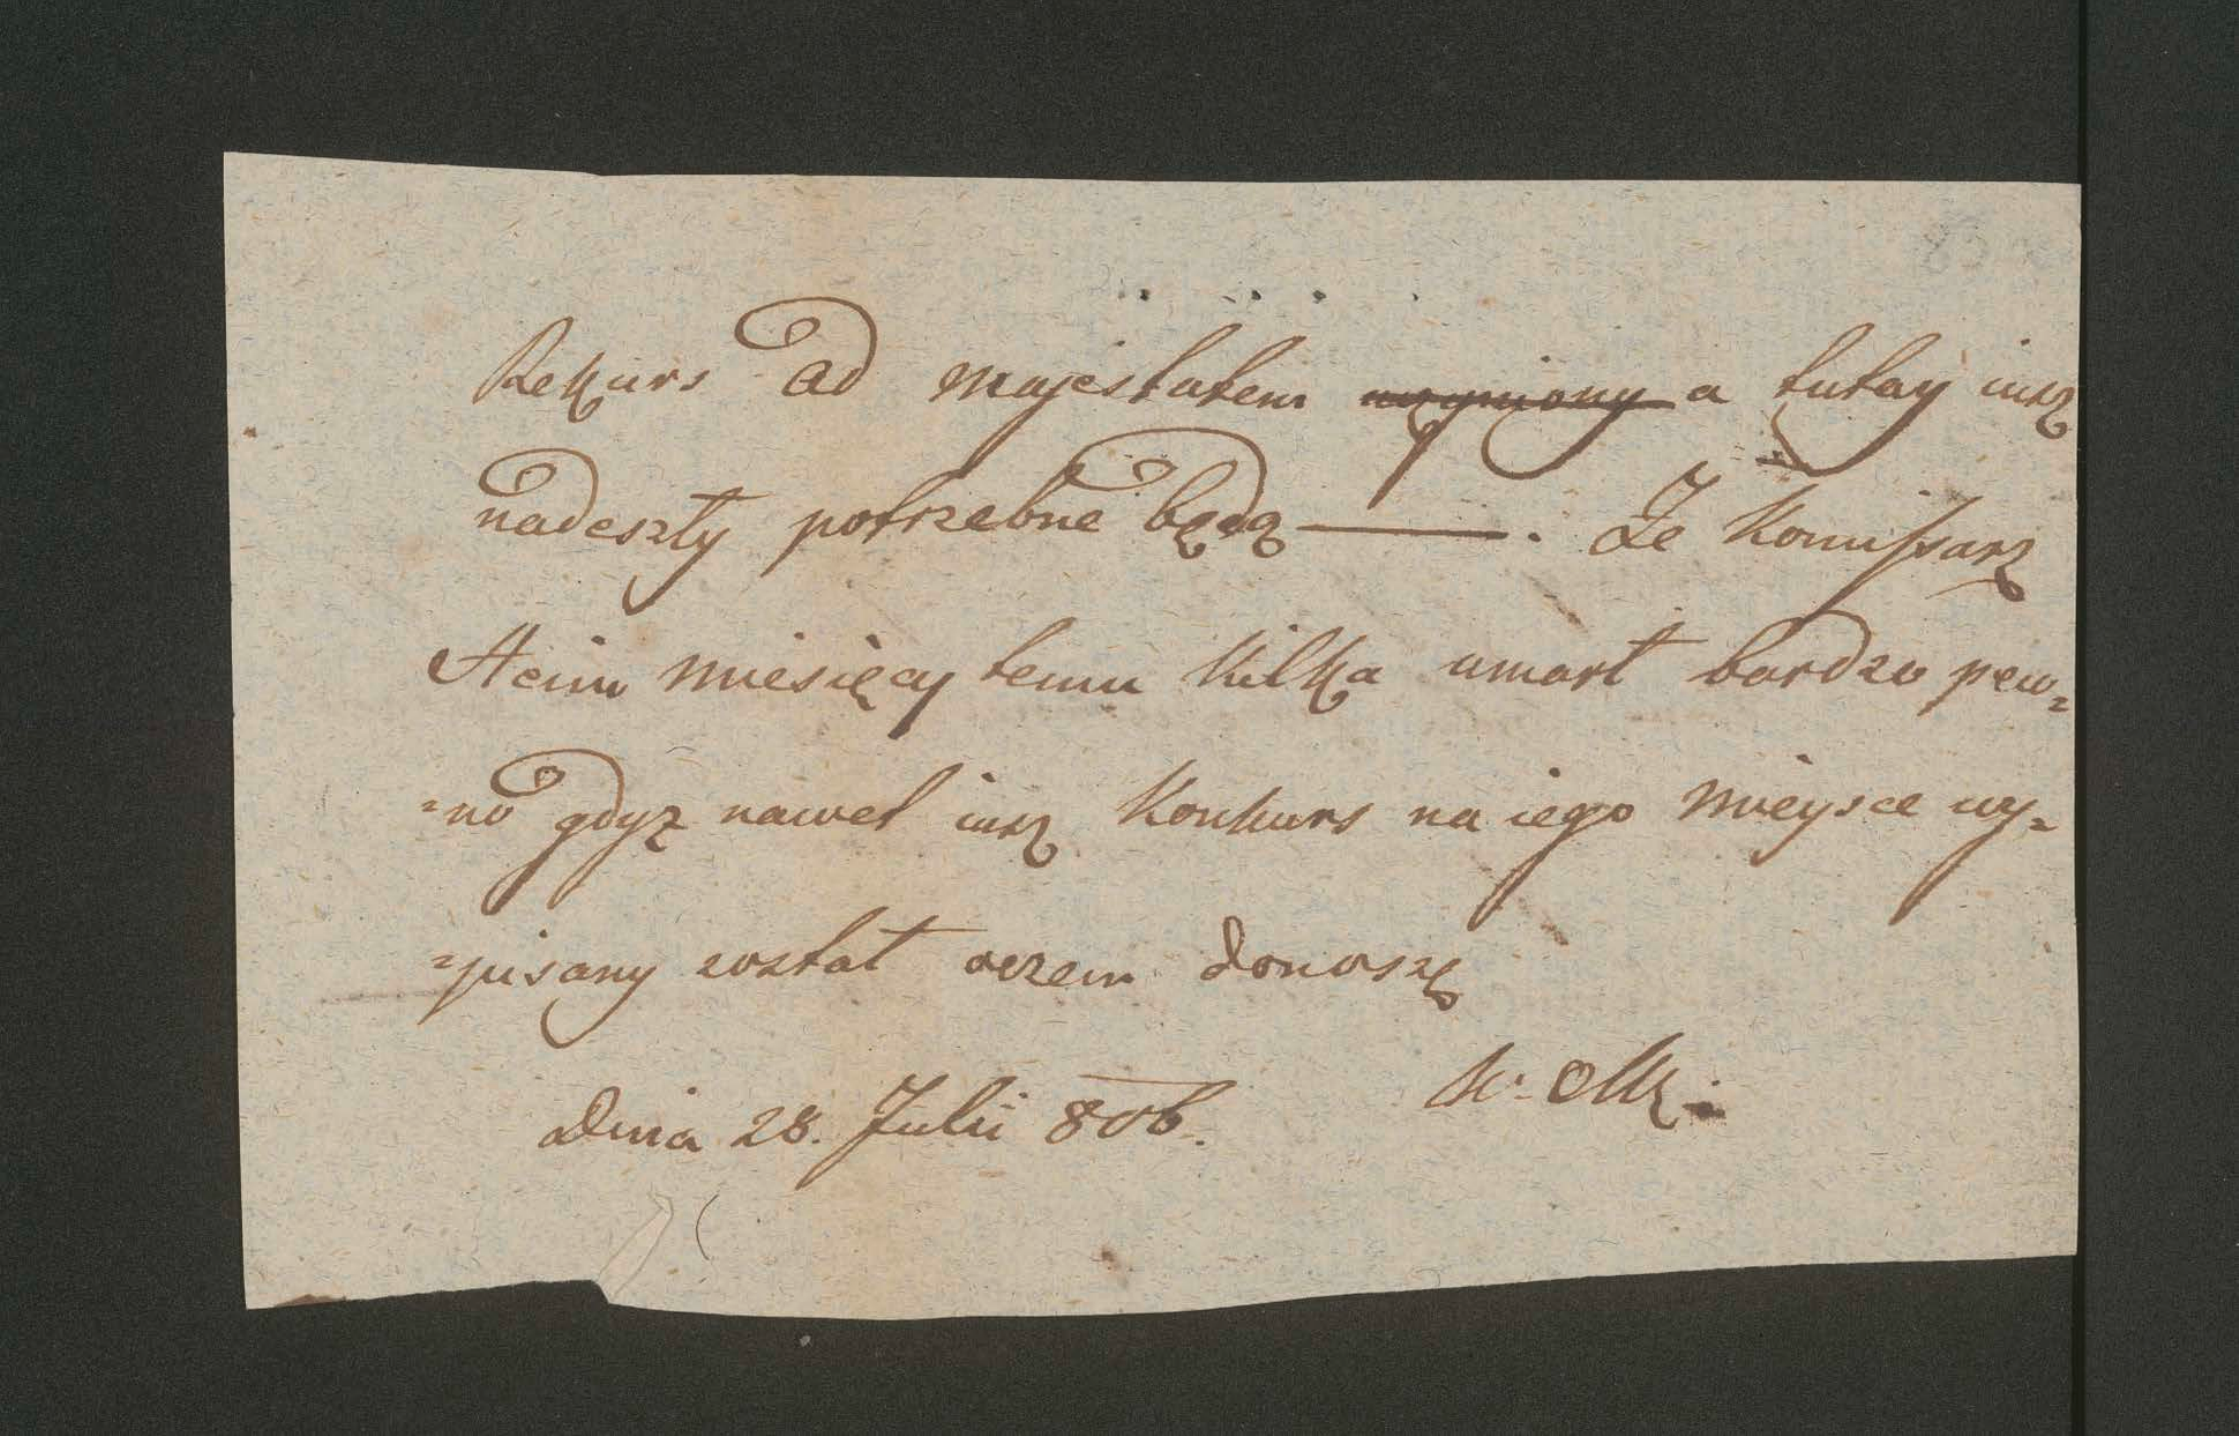 Rekurs ad majestatem uczyniony a tutay iusz
nadeszły potrzebne będą ———. Ze Komissarz
Heim miesięcy temu kilka umarł bardzo pew=
=no gdyz nawet iusz Konkurs na iego mieysce wy=
=pisany został oczem donoszę
Dnia 28. Julii 806.